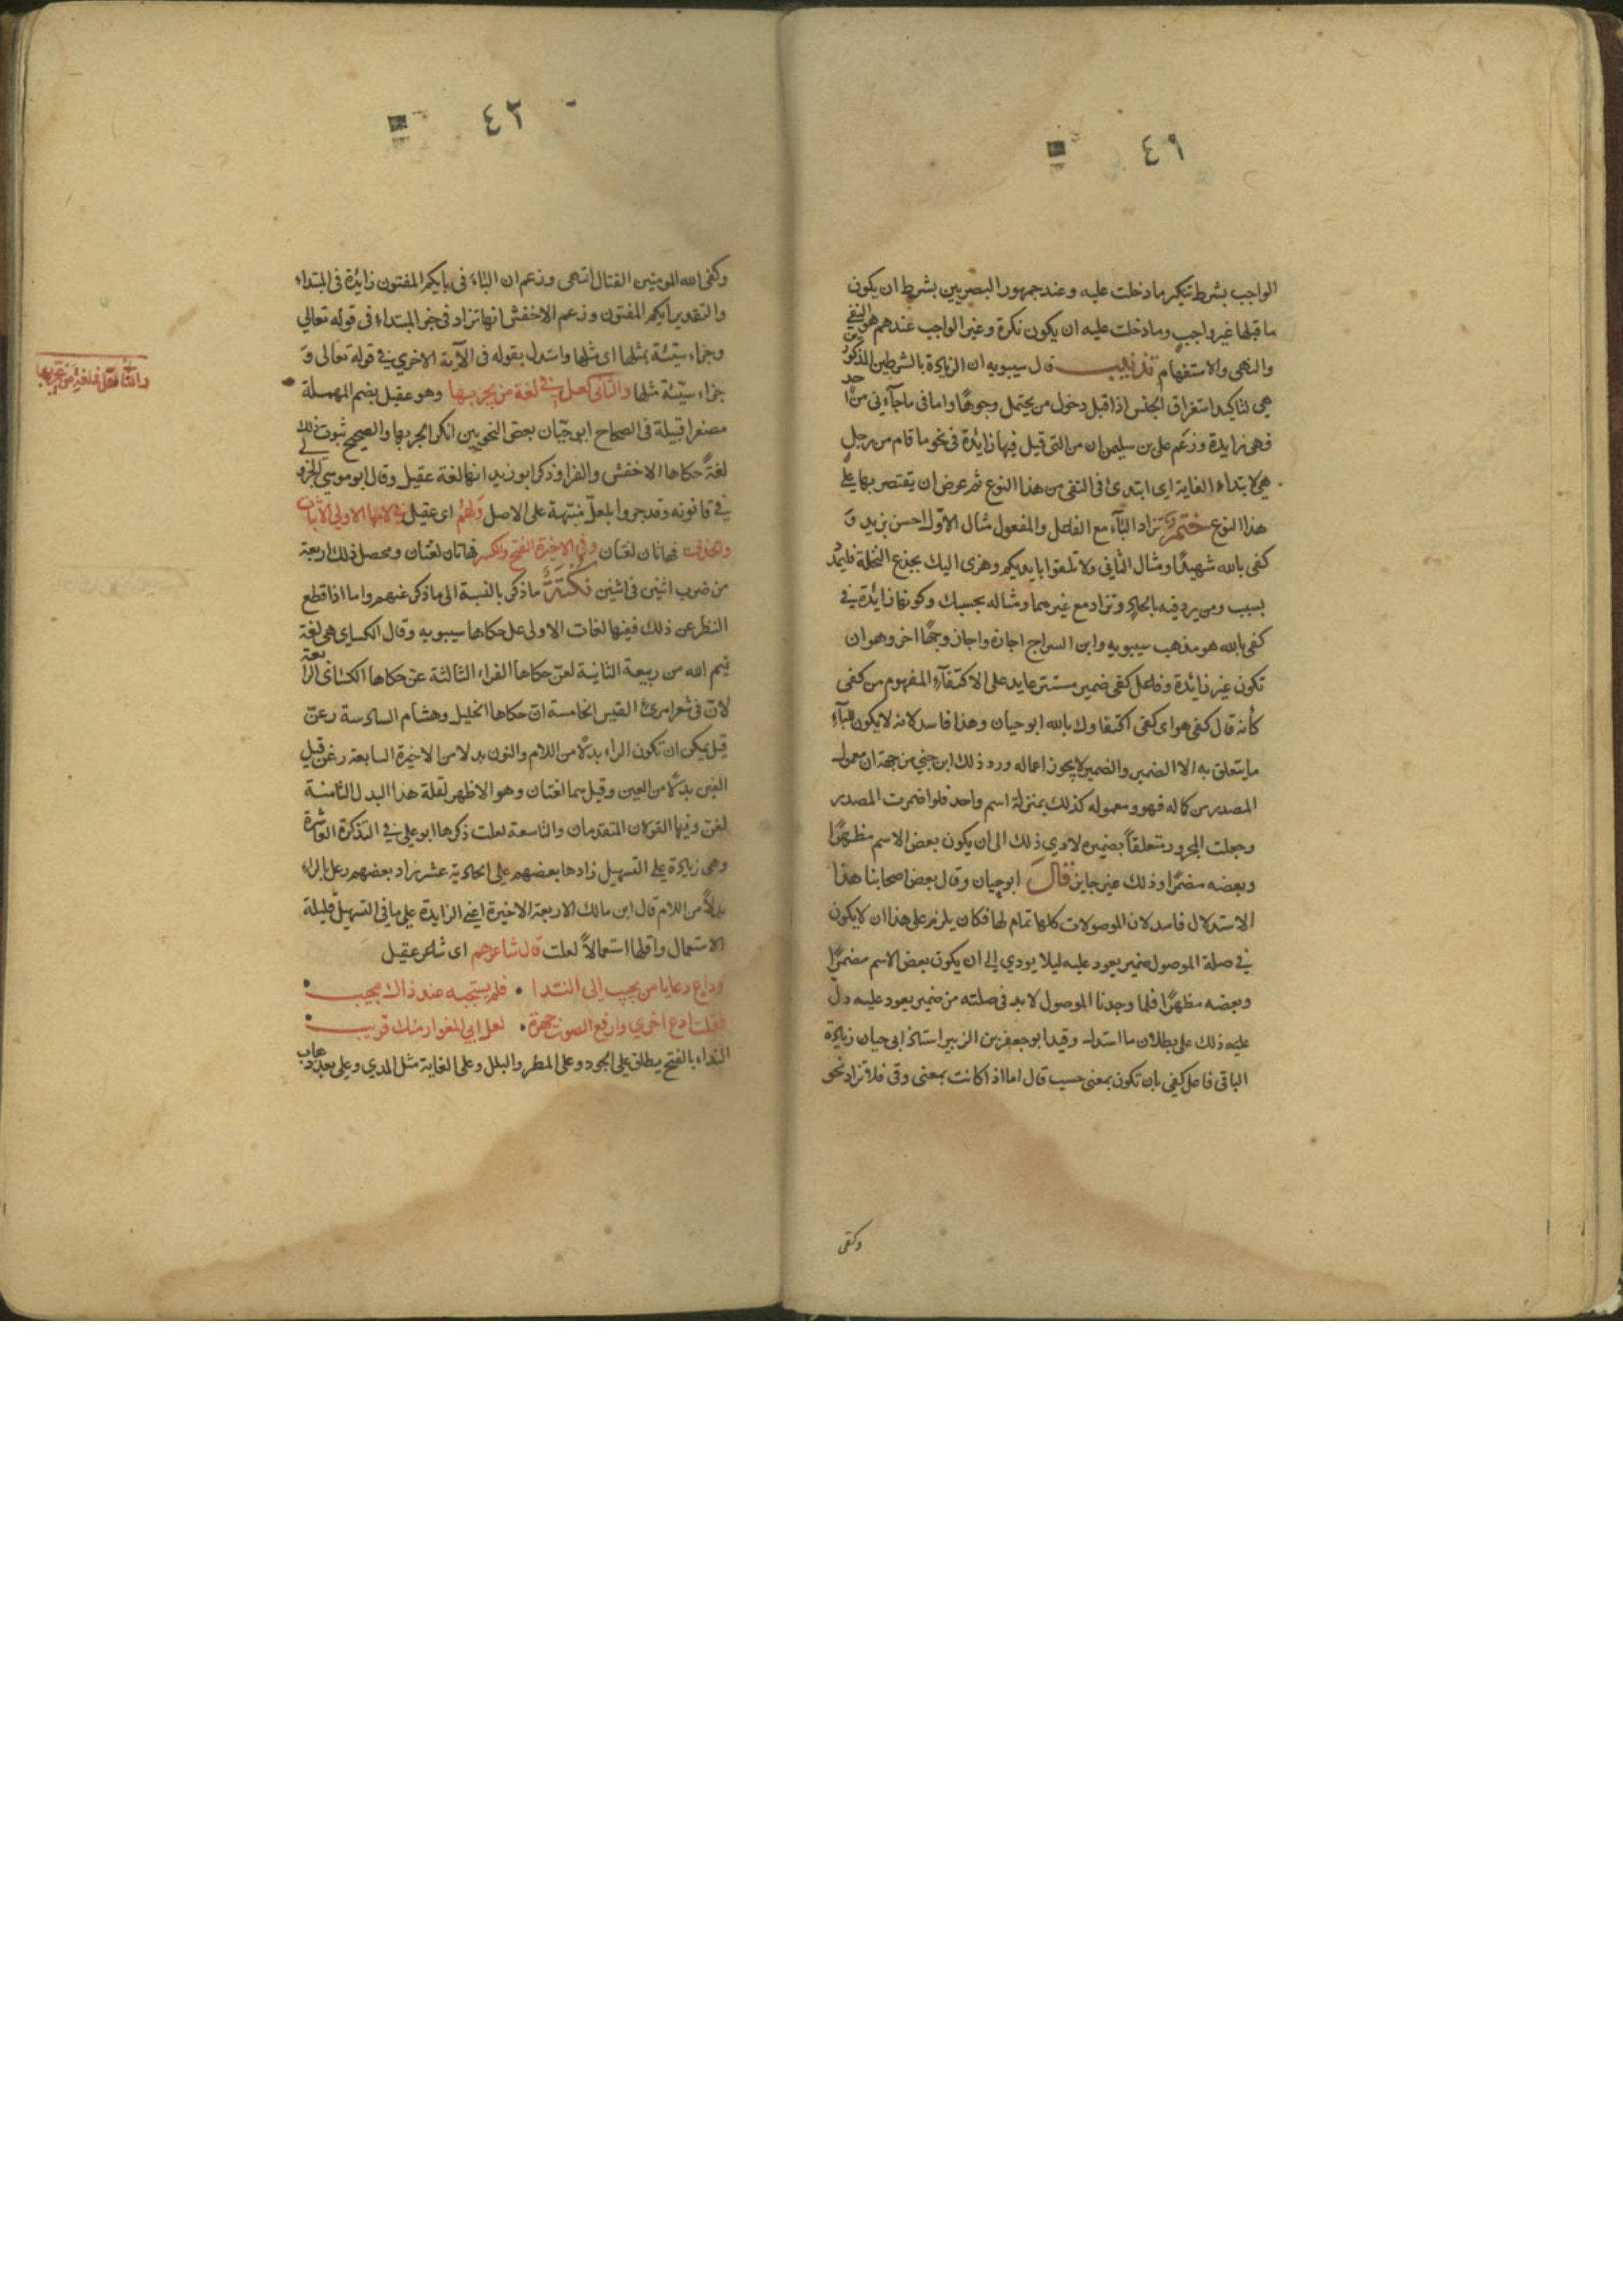 ٤١
الواجب بشرط تنكير ما دخلت عليه وعند جمهور البصريين بشرط ان يكون
ما قبلها غير واجب وما دخلت عليه ان يكون نكرة وغير الواجب عندهم هو النفي
والنهي والاستفهام تذنيب قال سيبويه ان الزيادة بالشرطين المذكورين
هي لتاكيد استغراق الجنس اذا قبل دخول من يحتمل وجوهًا واما في ما جآءني من احد
فهي زايدة وزعم علي بن سليمن ان من التي قيل فيها زائدة في نحو ما قام من رجل
هي لابتداء الغاية اي ابتدئ في النفي من هذا النوع ثم عرض ان يقتصر بها على
هذا النوع ختم وتزاد البآء مع الفاعل والمفعول مثال الاوّل احسن بزيد و
كفى بالله شهيدًا ومثال الثاني ولا تلقوا بايديكم وهزى اليك بجذع النخلة فليمدد
بسبب ومن يرد فيه بالحاد وتزاد مع غيرهما ومثاله بحسبك وكونها زائدة في
كفى بالله هو مذهب سيبويه وابن السراج اجازه واجاز وجهًا اخر وهو ان
تكون غير زائدة وفاعل كفى ضمير مستتر عايد على الاكتفآء المفهوم من كفى
كأنه قال كفى هو اى كفى اكتفاوك بالله ابو حيان وهذا فاسد لانه لا يكون للبآء
ما يتعلق به الا الضمير والضمير لا يجوز اعماله ورد ذلك ابن جني من جهة ان معمول
المصدر من كماله فهو ومعموله كذلك بمنزلة اسم واحد فلو اضمرت المصدر
وجعلت المجرور متعلقاً بضميره لادي ذلك الى ان يكون بعض الاسم مظهرًا
وبعضه مضمرًا وذلك غير جايز قال ابو حيان وقال بعض اصحابنا هذا
الاستدلال فاسد لان الموصولات كلها تمام لها فكان يلزم على هذا ان لا يكون
في صلة الموصول ضمير يعود عليه ليلا يودي الى ان يكون بعض الاسم مضمرًا
وبعضه مظهرًا فلما وجدنا الموصول لا بد في صلته من ضمير يعود عليه دل
عليه ذلك على بطلان ما استدل وقيد ابو جعفر بن الزبير استاذ ابي حيان زيادة
الباء في فاعل كفى بان تكون بمعنى حسب قال اما اذا كانت بمعنى وقى فلا تزاد نحو
وكفى
٤٢
وكفى الله المومنين القتال انتهى وزعم ان البّاء في بايكم المفتون زائدة في المبتداء
والتقدير ايكم المفتون وزعم الاخفش انها تزاد في خبر المبتداء في قوله تعالي
وجزاء سيّئة بمثلها اى مثلها واستدل بقوله في الآية الاخري في قوله تعالى و
جزاء سيّئة مثلها والثاني لعل في لغة من يجر بها وهو عقيل بضم المهملة
مصغرا قبيلة في الصحاح ابو حيّان بعض النحويين انكر الجر بها والصحيح ثبوت ذلك
لغةً حكاها الاخفش والفرا وذكر ابو زيد انها لغة عقيل وقال ابو موسي الجزولي
في قانونه وقد جروا بلعلّ منبّهة على الاصل ولهم اى عقيل في لامها الاولى الاثبات
والحذف فهاتان لغتان وفي الاخيرة الفتح والكسر فهاتان لغتان ومحصل ذلك اربعة
من ضرب اثنين في اثنين نكتة ما ذكر بالنسبة الى ما ذكر عنهم واما اذا قطع
النظر عن ذلك ففيها لغات الاولى عل حكاها سيبويه وقال الكسائى هي لغة
تيم الله من ربيعة الثانية لعنّ حكاها الفراء الثالثة عنّ حكاها الكسائى الرابعة
لانّ في شعر امرئ القيس الخامسة انّ حكاها الخليل وهشام السادسة رعنّ
قيل يمكن ان تكون الراء بدلا من اللام والنون بدلا من الاخيرة السابعة رغنّ قيل
الغين بدلًا من العين وقيل هما لغتان وهو الاظهر لقلة هذا البدل الثامنة
لغنّ وفيها القولان المتقدمان والتاسعة لعلت ذكرها ابو علي في التذكرة العاشرة
وهي زيادة على التسهيل زادها بعضهم علي الحادية عشر زاد بعضهم رعل بالراء
بدلاً من اللام قال ابن مالك الاربعة الاخيرة اعني الزايدة على ما في التسهيل قليلة
الاستعمال واقلها استعمالاً لعلت قال شاعرهم اى شاعر عقيل
وداع دعا يا من يجيب الى الندا • فلم يستجبه عند ذاك مجيب •
فقلت ادع اخري وارفع الصوت جهرة • لعل ابي المغوار منك قريب •
النداء بالفتح يطلق على الجود وعلى المطر والبلل وعلى الغاية مثل المدي وعلى بعد ذهاب
والثاني لعلّ في لغة من يجر بها